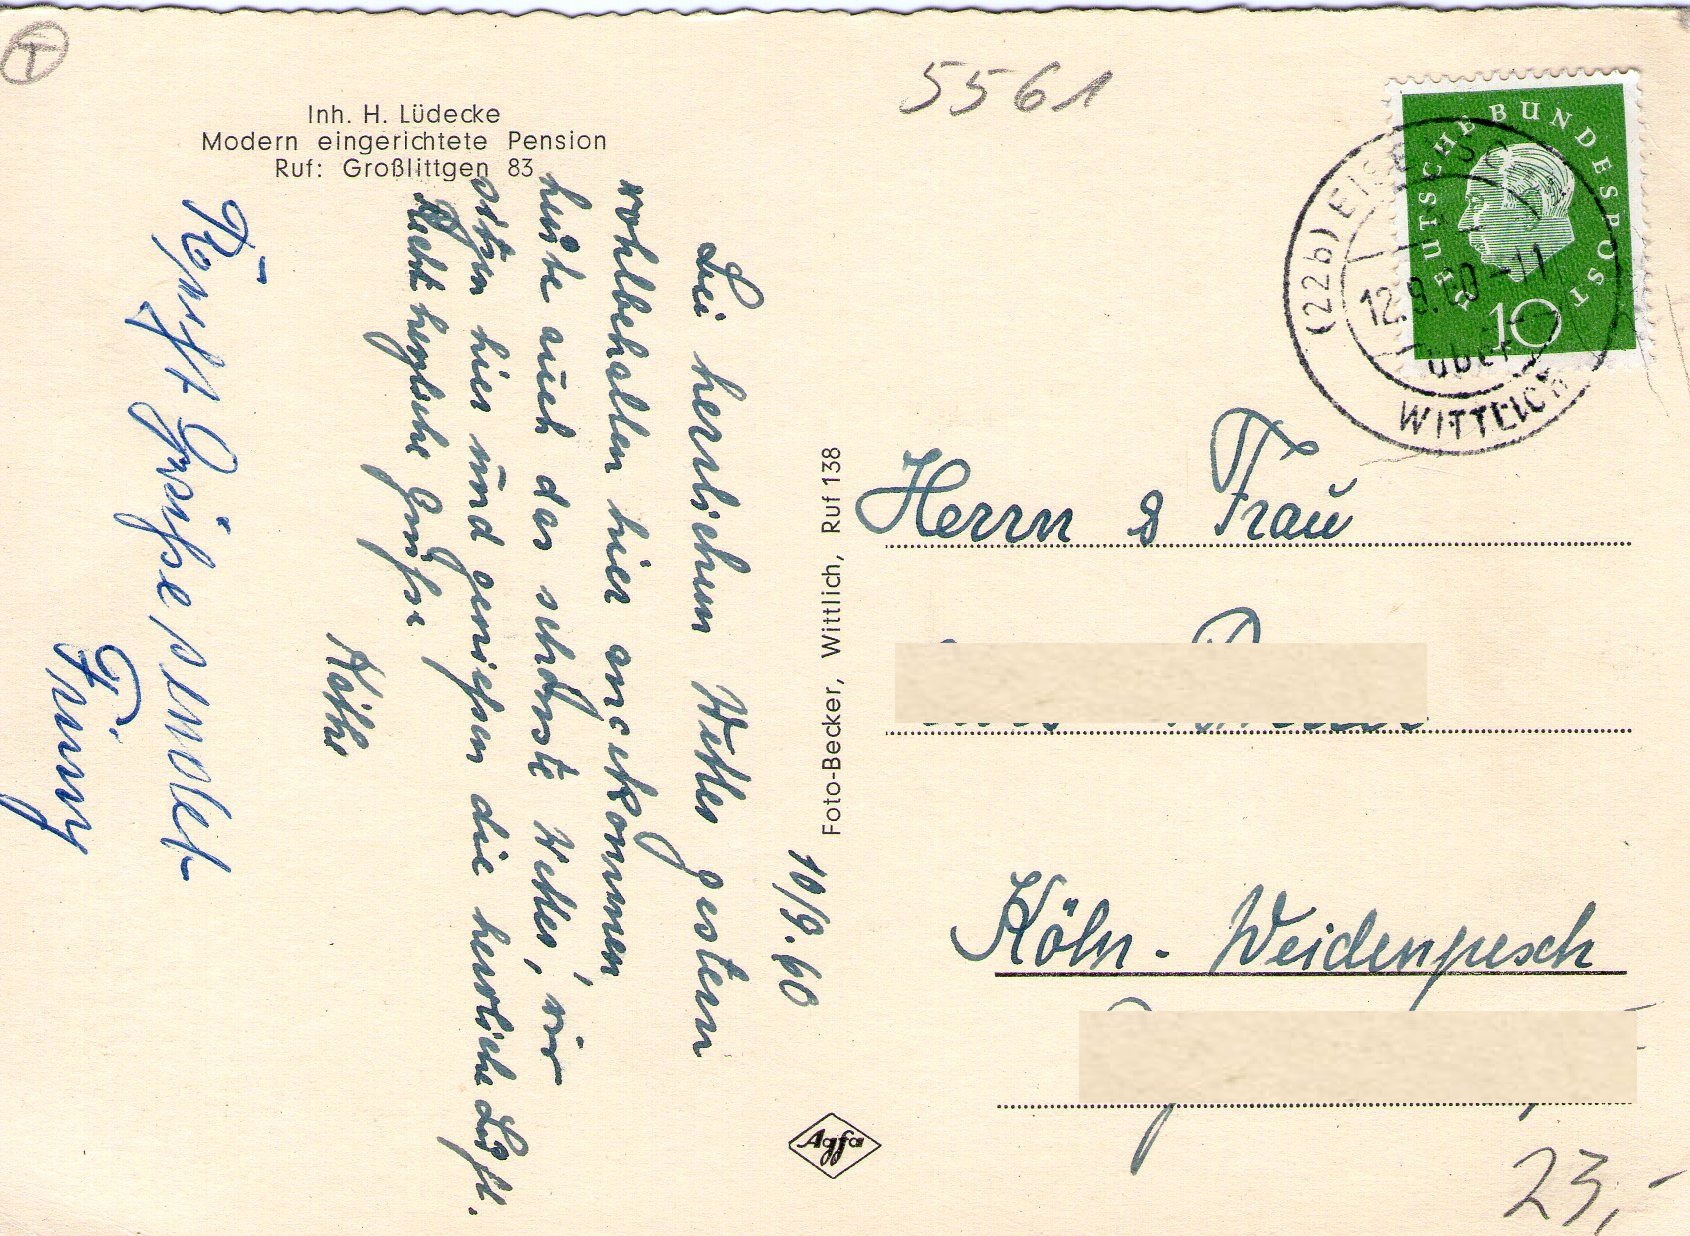 T
5561
Inh. H. Lüdecke
Modern eingerichtete Pension
Ruf: Großlittgen 83
DEUTSCHE BUNDESPOST
10
(22b) EISE
12.9.60-11
über
WITTLICH
10/9.60
Bei herrlichem Wetter gestern
wohlbehalten hier angekommen
heute auch das schönste Wetter, wir
sitzen hier und genießen die herrliche Luft.
Recht herzliche Grüße
Käthe
Grüße sendet
Finny
Foto-Becker, Wittlich, Ruf 138
Herrn & Frau
Köln-Weidenpesch
Agfa
23,-